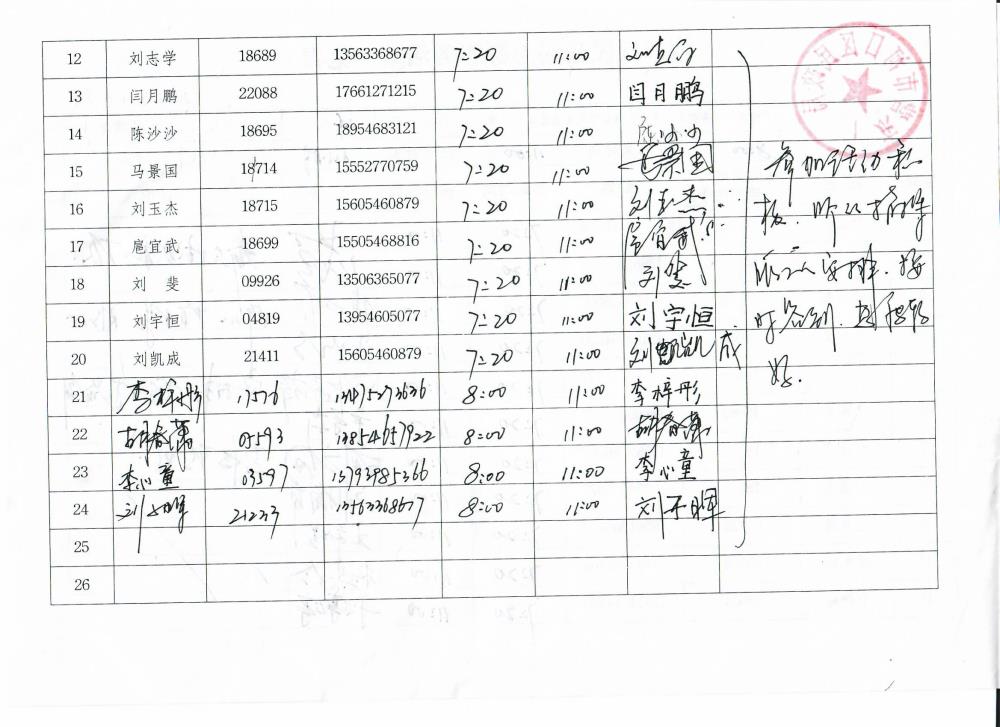 12 刘志学 18689 13563368677 7:20 11:00
13 闫月鹏 22088 17661271215 7:20 11:00 闫月鹏
14 陈沙沙 18695 18954683121 7:20 11:00 陈沙沙
15 马景国 18714 15552770759 7:20 11:00 马景国
16 刘玉杰 18715 15605460879 7:20 11:00 刘玉杰
17 扈宜武 18699 15505468816 7:20 11:00 扈宜武
18 刘 斐 09926 13506365077 7:20 11:00 刘斐
19 刘宇恒 04819 13954605077 7:20 11:00 刘宇恒
20 刘凯成 21411 15605460879 7:20 11:00 刘凯成
21 李梓彤 17576 13475273636 8:00 11:00 李梓彤
22 胡春 05593 13854657922 8:00 11:00 胡春
23 李心童 03597 13793985366 8:00 11:00 李心童
24 刘子晖 21233 13563368677 8:00 11:00 刘子晖
25
26
参加活动积
极.
安排.按
时
好.